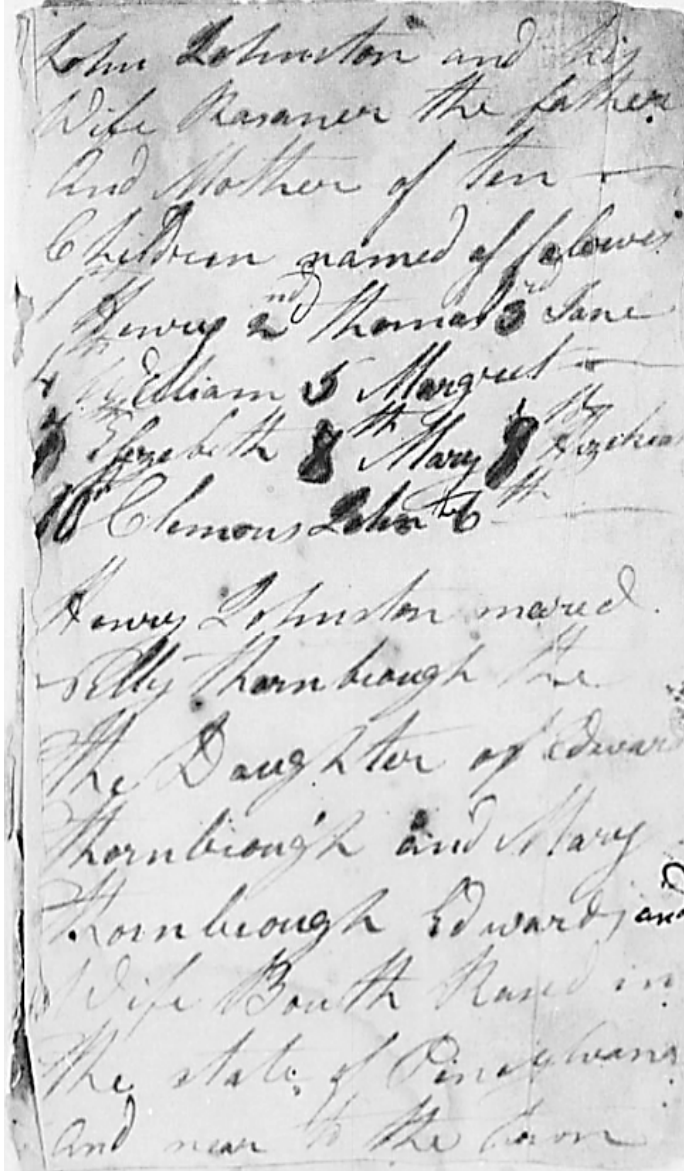 John Johnston and his
Wife Rasaner the father
And Mother of ten
Children named of folowes
1st Henry 2nd thomas 3rd Jane
4th William 5 Margret
Elizabeth 8th Mary 9
10th Clemons John the 6th
Henry Johnston mared
thornbrough the
the Daughter of Edward
thornbrough and Mary
thornbrough Edward and
Wife Bouth Rased in
the state of Pinsylvana
And near to the town